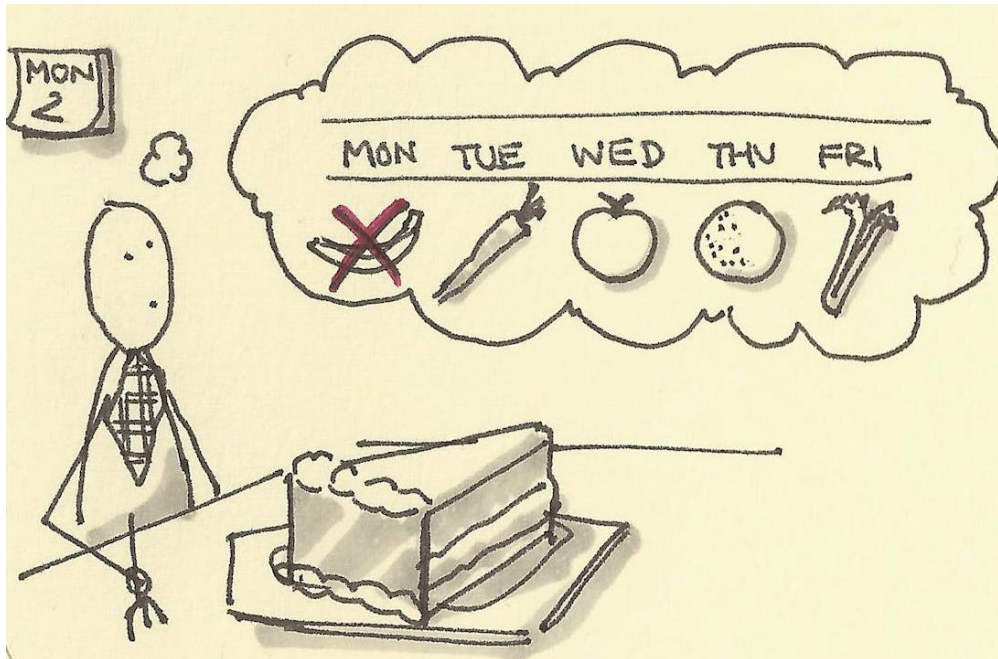 MON
2
MON TUE WED THU FRI